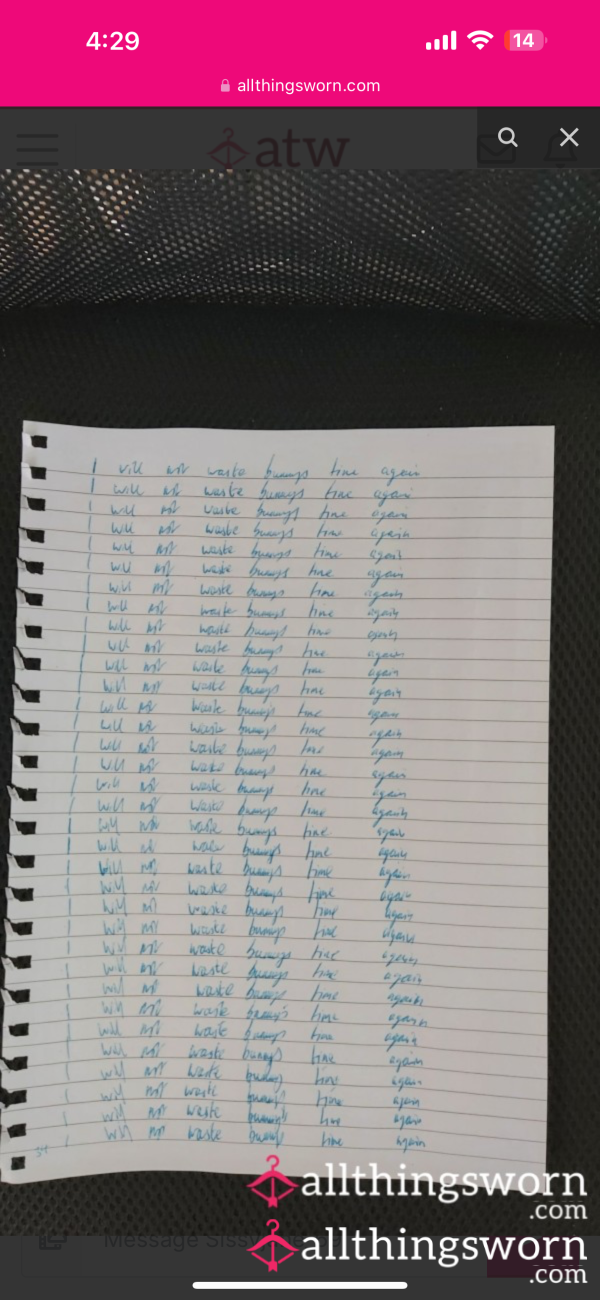 4:29
14
allthingsworn.com
atw
I will not waste bunnys time again
I will not waste bunnys time again
I will not waste bunnys time again
I will not waste bunnys time again
I will not waste bunnys time again
I will not waste bunnys time again
I will not waste bunnys time again
I will not waste bunnys time again
I will not waste bunnys time again
I will not waste bunnys time again
I will not waste bunnys time again
I will not waste bunnys time again
I will not waste bunnys time again
I will not waste bunnys time again
I will not waste bunnys time again
I will not waste bunnys time again
I will not waste bunnys time again
I will not waste bunnys time again
I will not waste bunnys time again
I will not waste bunnys time again
I will not waste bunnys time again
I will not waste bunnys time again
I will not waste bunnys time again
I will not waste bunnys time again
I will not waste bunnys time again
I will not waste bunnys time again
I will not waste bunnys time again
I will not waste bunny's time again
I will not waste bunnys time again
I will not waste bunnys time again
I will not waste bunnys time again
I will not waste bunnys time again
I will not waste bunnys time again
34 I will not waste bunnys time again
allthingsworn
.com
Message
allthingsworn
.com